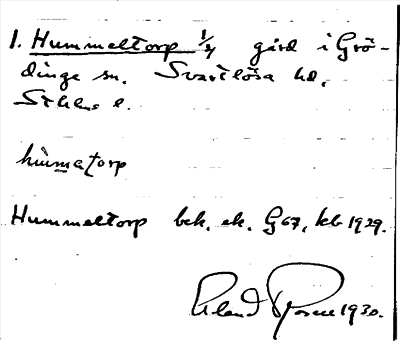 1. Hummeltorp 1/4 gård i Grö-
dinge sn. Svartlösa hd.
Sthlms l.
hummatorp
Hummeltorp bek. ek. G 67, kb 1929.
Erland 1930.